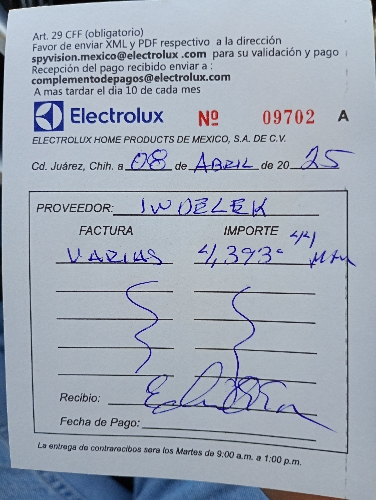 Art. 29 CFF (obligatorio)
Favor de enviar XML y PDF respectivo a la dirección
spyvision.mexico@electrolux .com para su validación y pago
Recepción del pago recibido enviar a :
complementodepagos@electrolux.com
A mas tardar el dia 10 de cada mes
Electrolux Nº 09702 A
ELECTROLUX HOME PRODUCTS DE MEXICO, S.A. DE C.V.
Cd. Juárez, Chih. a 08 de ABRIL de 20 25
PROVEEDOR: INDELEK
FACTURA IMPORTE
VARIAS 4,393.44 M.N.
Recibio:
Fecha de Pago:
La entrega de contrarecibos sera los Martes de 9:00 a.m. a 1:00 p.m.